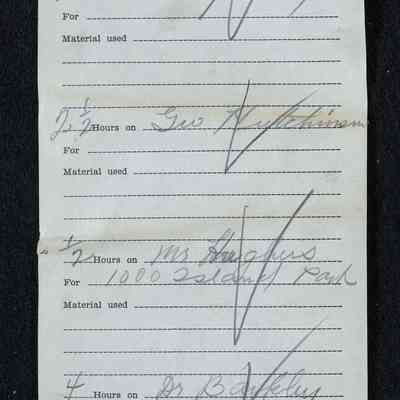 For
Material used
2 1/2 Hours on Geo Hutchinson
For
Material used
1/2 Hours on Mr Hughes
For 1000 Island Park
Material used
4 Hours on Dr